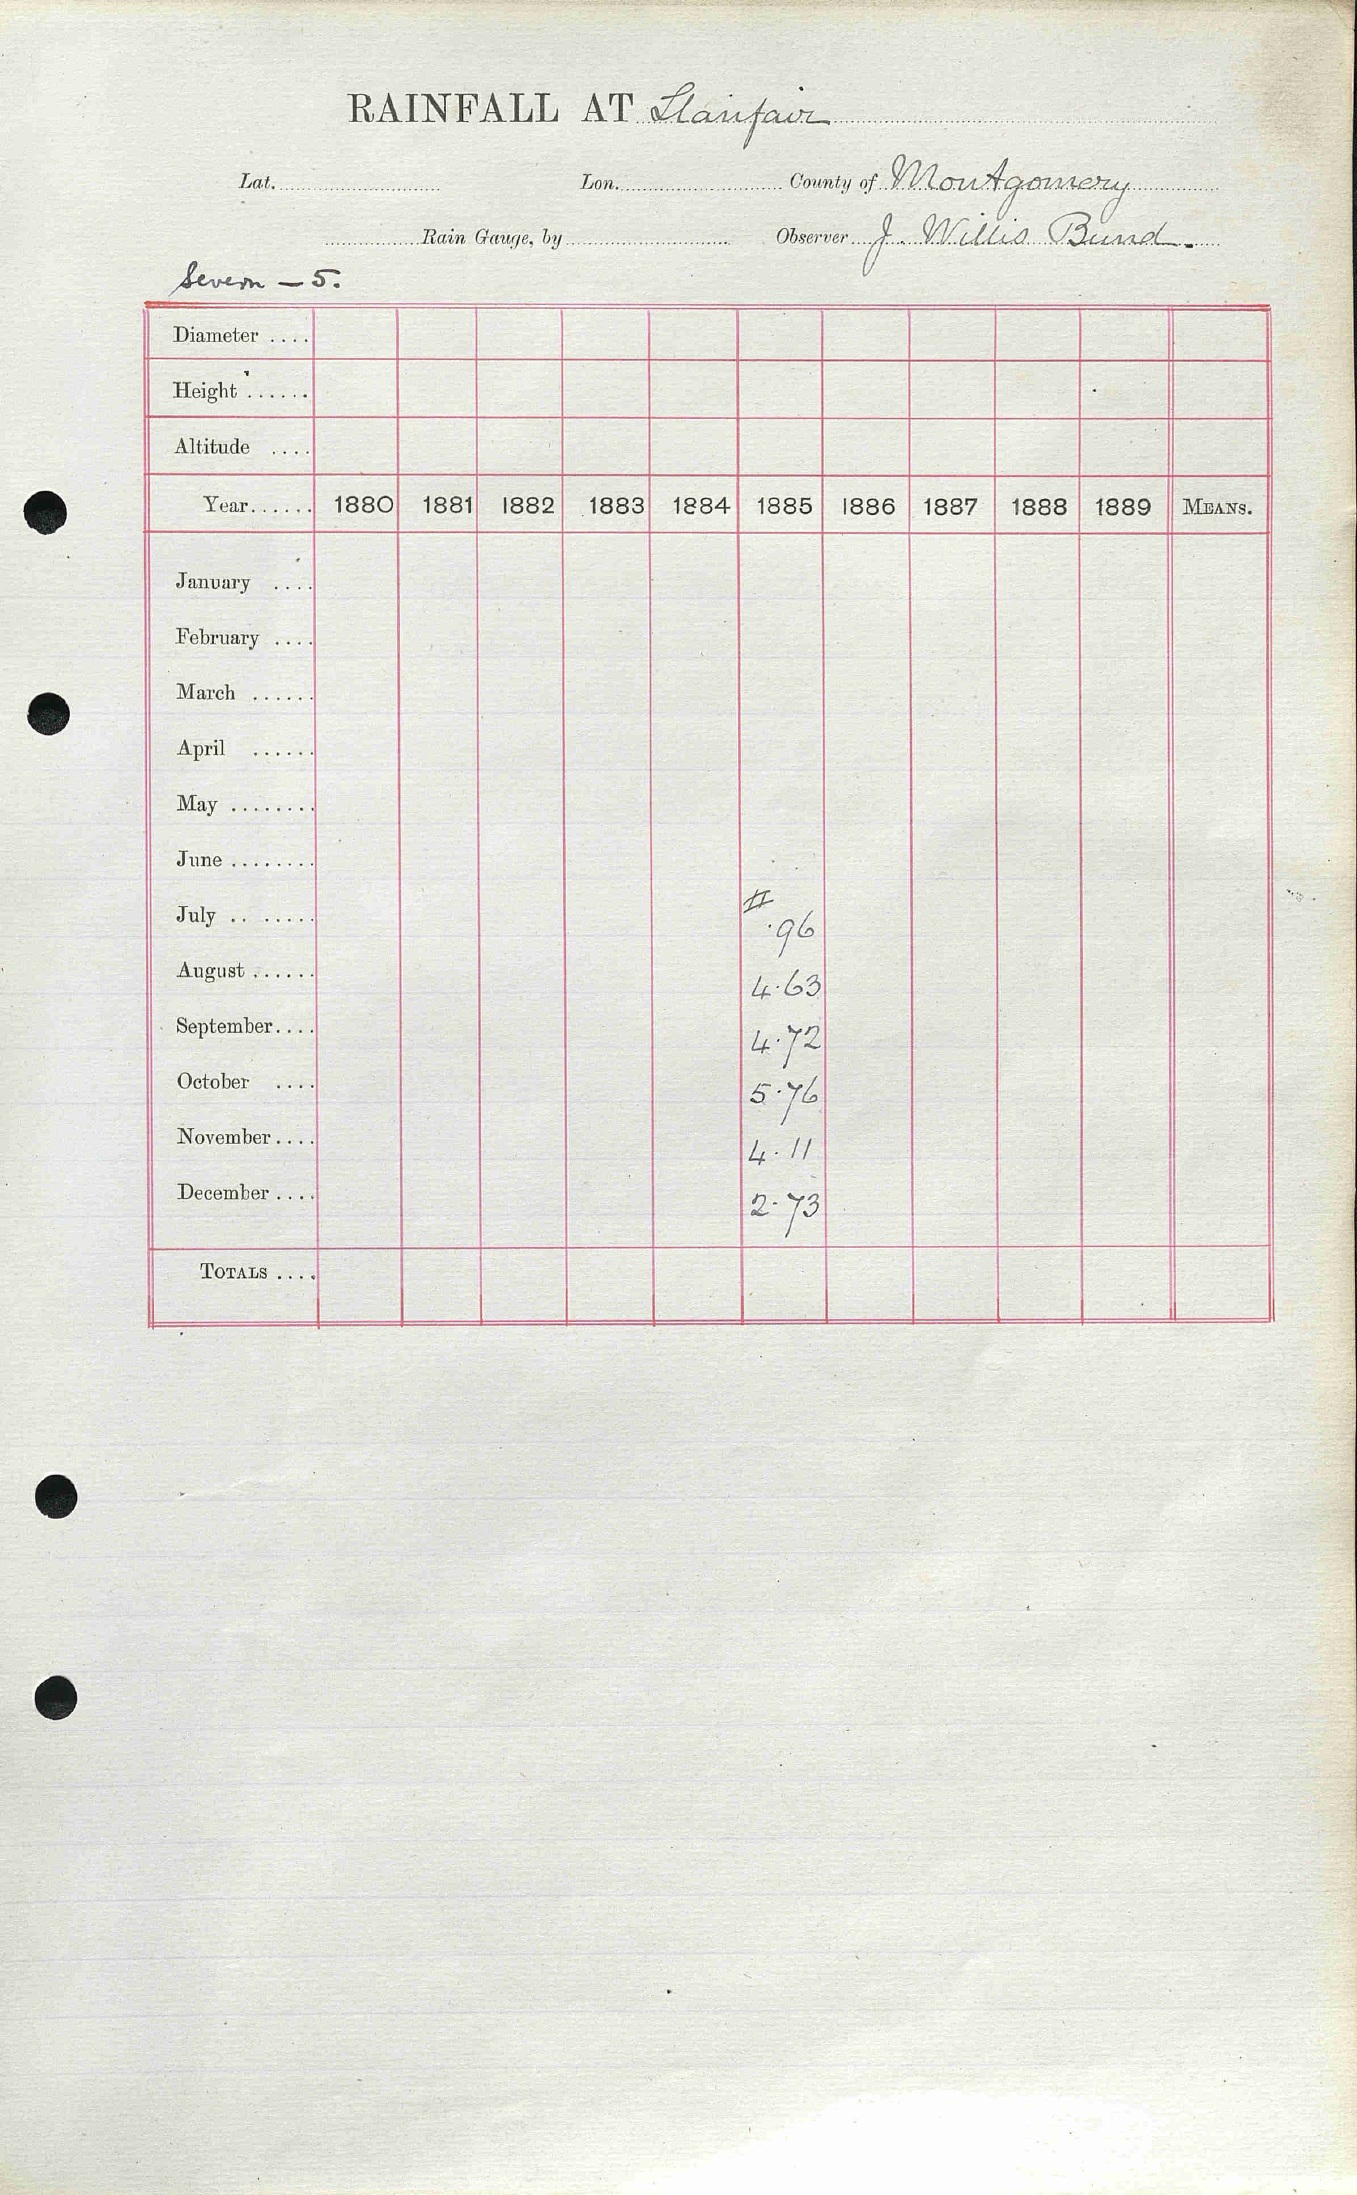 RAINFALL AT Llanfair
Lat. Lon. County of Montgomery
Rain Gauge, by Observer J. Willis Bund.
Severn - 5.
Diameter ....
Height ......
Altitude ....
Year...... 1880 1881 1882 1883 1884 1885 1886 1887 1888 1889 MEANS.
January ....
February ....
March ......
April ......
May ........
June ........
July .. ...... # ·96
August ...... 4·63
September.... 4·72
October .... 5·76
November.... 4·11
December.... 2·73
TOTALS ....